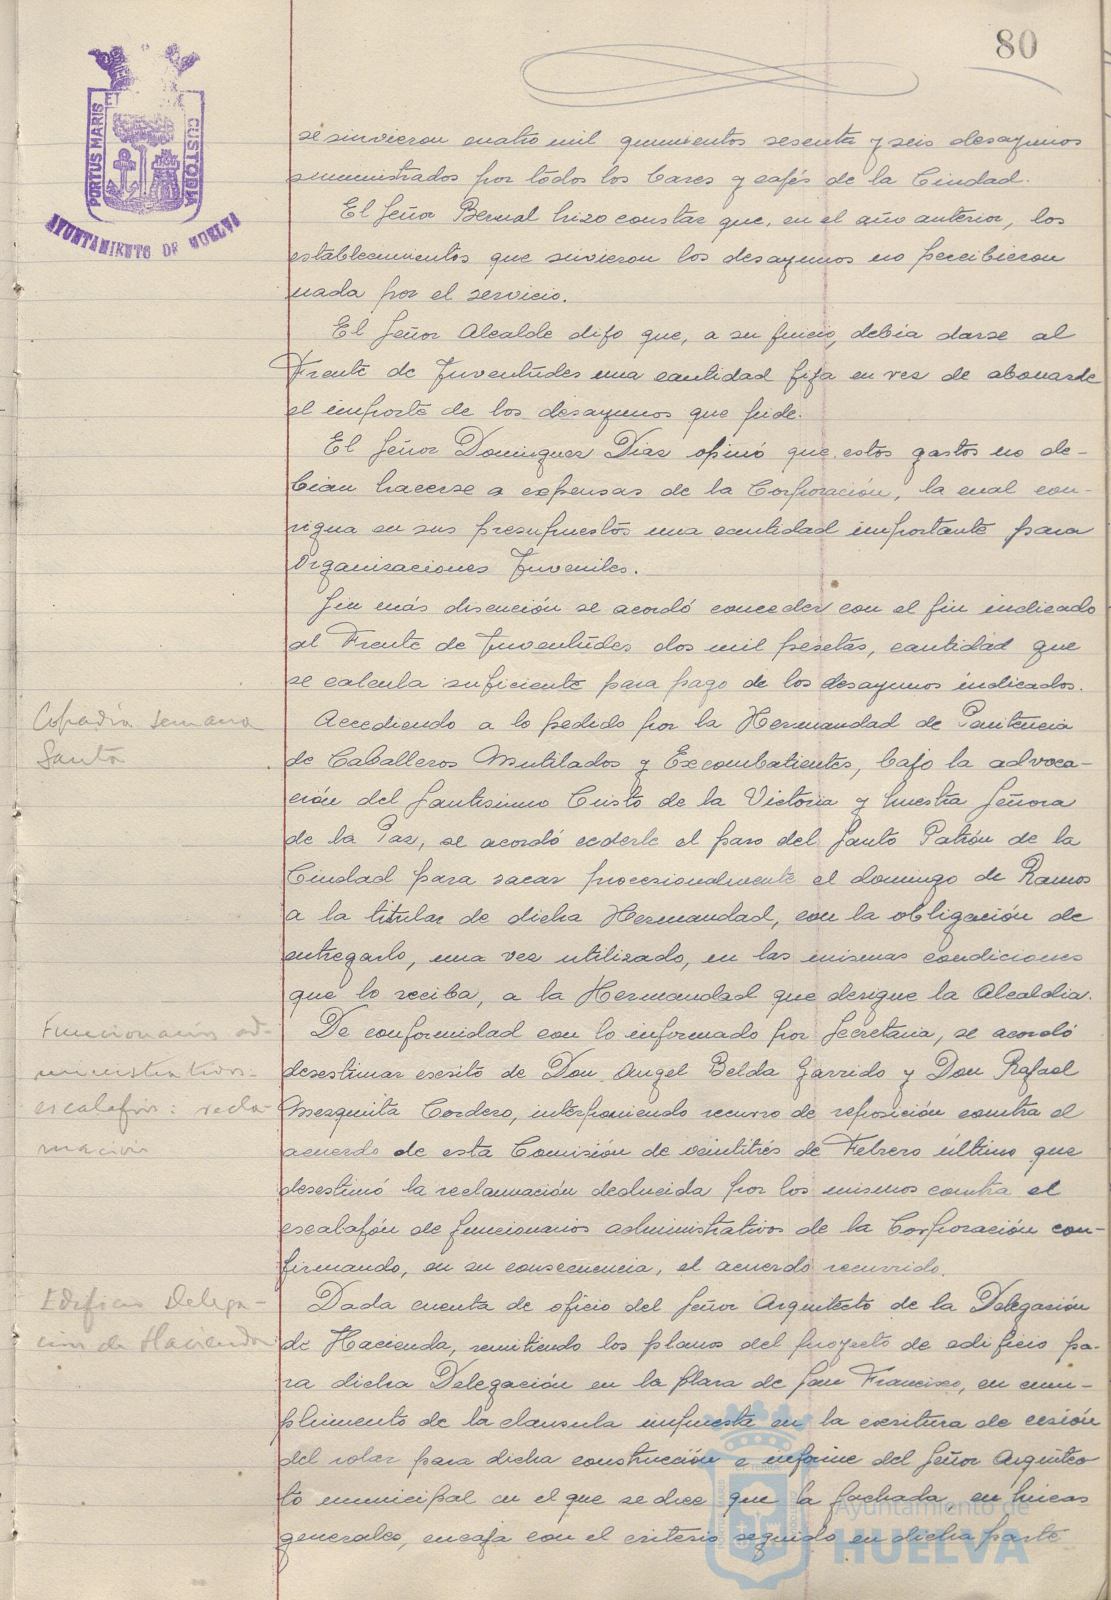 80
PORTUS MARIS
CUSTODIA
AYUNTAMIENTO DE HUELVA
se sirvieron cuatro mil quinientos sesenta y seis desayunos
suministrados por todos los bares y cafés de la Ciudad.
El Señor Bernal hizo constar que, en el año anterior, los
establecimientos que sirvieron los desayunos no percibieron
nada por el servicio.
El Señor Alcalde dijo que, a su juicio, debía darse al
Frente de Juventudes una cantidad fija en vez de abonarse
el importe de los desayunos que pide.
El Señor Dominguez Diaz opinó que estos gastos no de-
bian hacerse a expensas de la Corporación, la cual con-
signa en sus presupuestos una cantidad importante para
Organizaciones Juveniles.
Sin más discusión se acordó conceder con el fin indicado
al Frente de Juventudes dos mil pesetas, cantidad que
se calcula suficiente para pago de los desayunos indicados.
Cofradía Semana
Santa
Accediendo a lo pedido por la Hermandad de Penitencia
de Caballeros Mutilados y Excombatientes, bajo la advoca-
ción del Santisimo Cristo de la Victoria y Nuestra Señora
de la Paz, se acordó cederle el paso del Santo Patrón de la
Ciudad para sacar procesionalmente el domingo de Ramos
a la titular de dicha Hermandad, con la obligación de
entregarlo, una vez utilizado, en las mismas condiciones
que lo reciba, a la Hermandad que designe la Alcaldia.
Funcionarios ad-
ministrativos-
escalafón: recla-
mación
De conformidad con lo informado por Secretaria, se acordó
desestimar escrito de Don Angel Belda Garrido y Don Rafael
Mezquita Cordero, interponiendo recurso de reposición contra el
acuerdo de esta Comisión de veintitrés de Febrero último que
desestimó la reclamación deducida por los mismos contra el
escalafón de funcionarios administrativos de la Corporación con-
firmando, en su consecuencia, el acuerdo recurrido.
Edificio Delega-
ción de Hacienda
Dada cuenta de oficio del Señor Arquitecto de la Delegación
de Hacienda, remitiendo los planos del proyecto de edificio pa-
ra dicha Delegación en la plaza de San Francisco, en cum-
plimento de la clausula impuesta en la escritura de cesión
del solar para dicha construcción e informe del Señor Arquitec
to municipal en el que se dice que la fachada, en lineas
generales, encaja con el criterio seguido en dicha parte
Ayuntamiento de
HUELVA